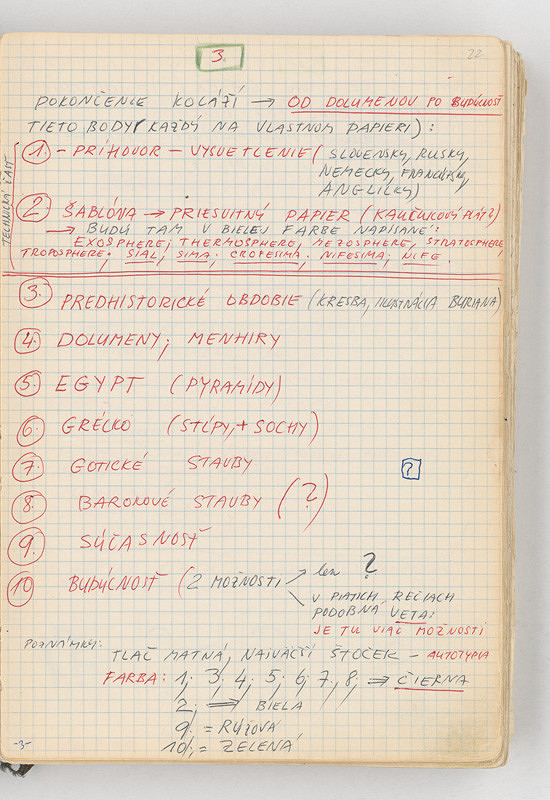 3.
22
POKONČENIE KOLÁŽÍ → OD DOLUMENOV PO BUDÚCNOSŤ
TIETO BODY (KAŽDÝ NA VLASTNOM PAPIERI):
TECHNICKÁ ČASŤ
1. - PRÍHOVOR - VYSVETLENIE (SLOVENSKY, RUSKY,
NEMECKY, FRANCÚZSKY,
ANGLICKY)
2 ŠABLÓNA → PRIESVITNÝ PAPIER (KAUČUKOVÝ PLÁT?)
→ BUDÚ TAM V BIELEJ FARBE NAPÍSANÉ:
EXOSPHERE; THERMOSPHERE, MEZOSPHERE, STRATOSPHERE
TROPOSPHERE; SIAL; SIMA; CROFESIMA. NIFESIMA; NIFE.
3. PREDHISTORICKÉ OBDOBIE (KRESBA, ILUSTRÁCIA BURIANA)
4. DOLUMENY; MENHIRY
5. EGYPT (PYRAMÍDY)
6. GRÉCKO (STĹPY, + SOCHY)
7. GOTICKÉ STAVBY
?
8. BAROKOVÉ STAVBY (?)
9. SÚČASNOSŤ
10 BUDÚCNOSŤ (2 MOŽNOSTI
len ?
V PIATICH REČIACH
PODOBNÁ VETA:
JE TU VIAC MOŽNOSTI
POZNÁMKY:
TLAČ MATNÁ, NAJVÄČŠÍ ŠTOČEK - AUTOTYPIA
FARBA: 1; 3; 4; 5; 6; 7, 8; ⇒ ČIERNA
2. ⇒ BIELA
9. = RUŽOVÁ
10. = ZELENÁ
-3-